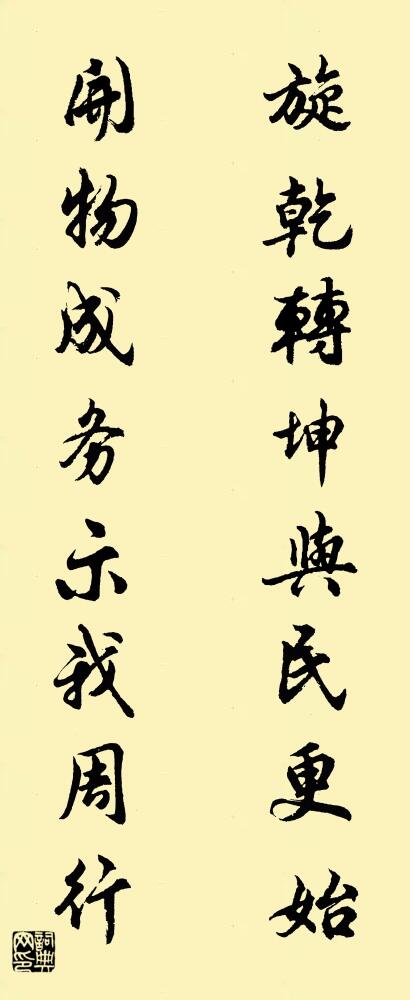 旋乾轉坤與民更始
開物成务示我周行
詞典网印